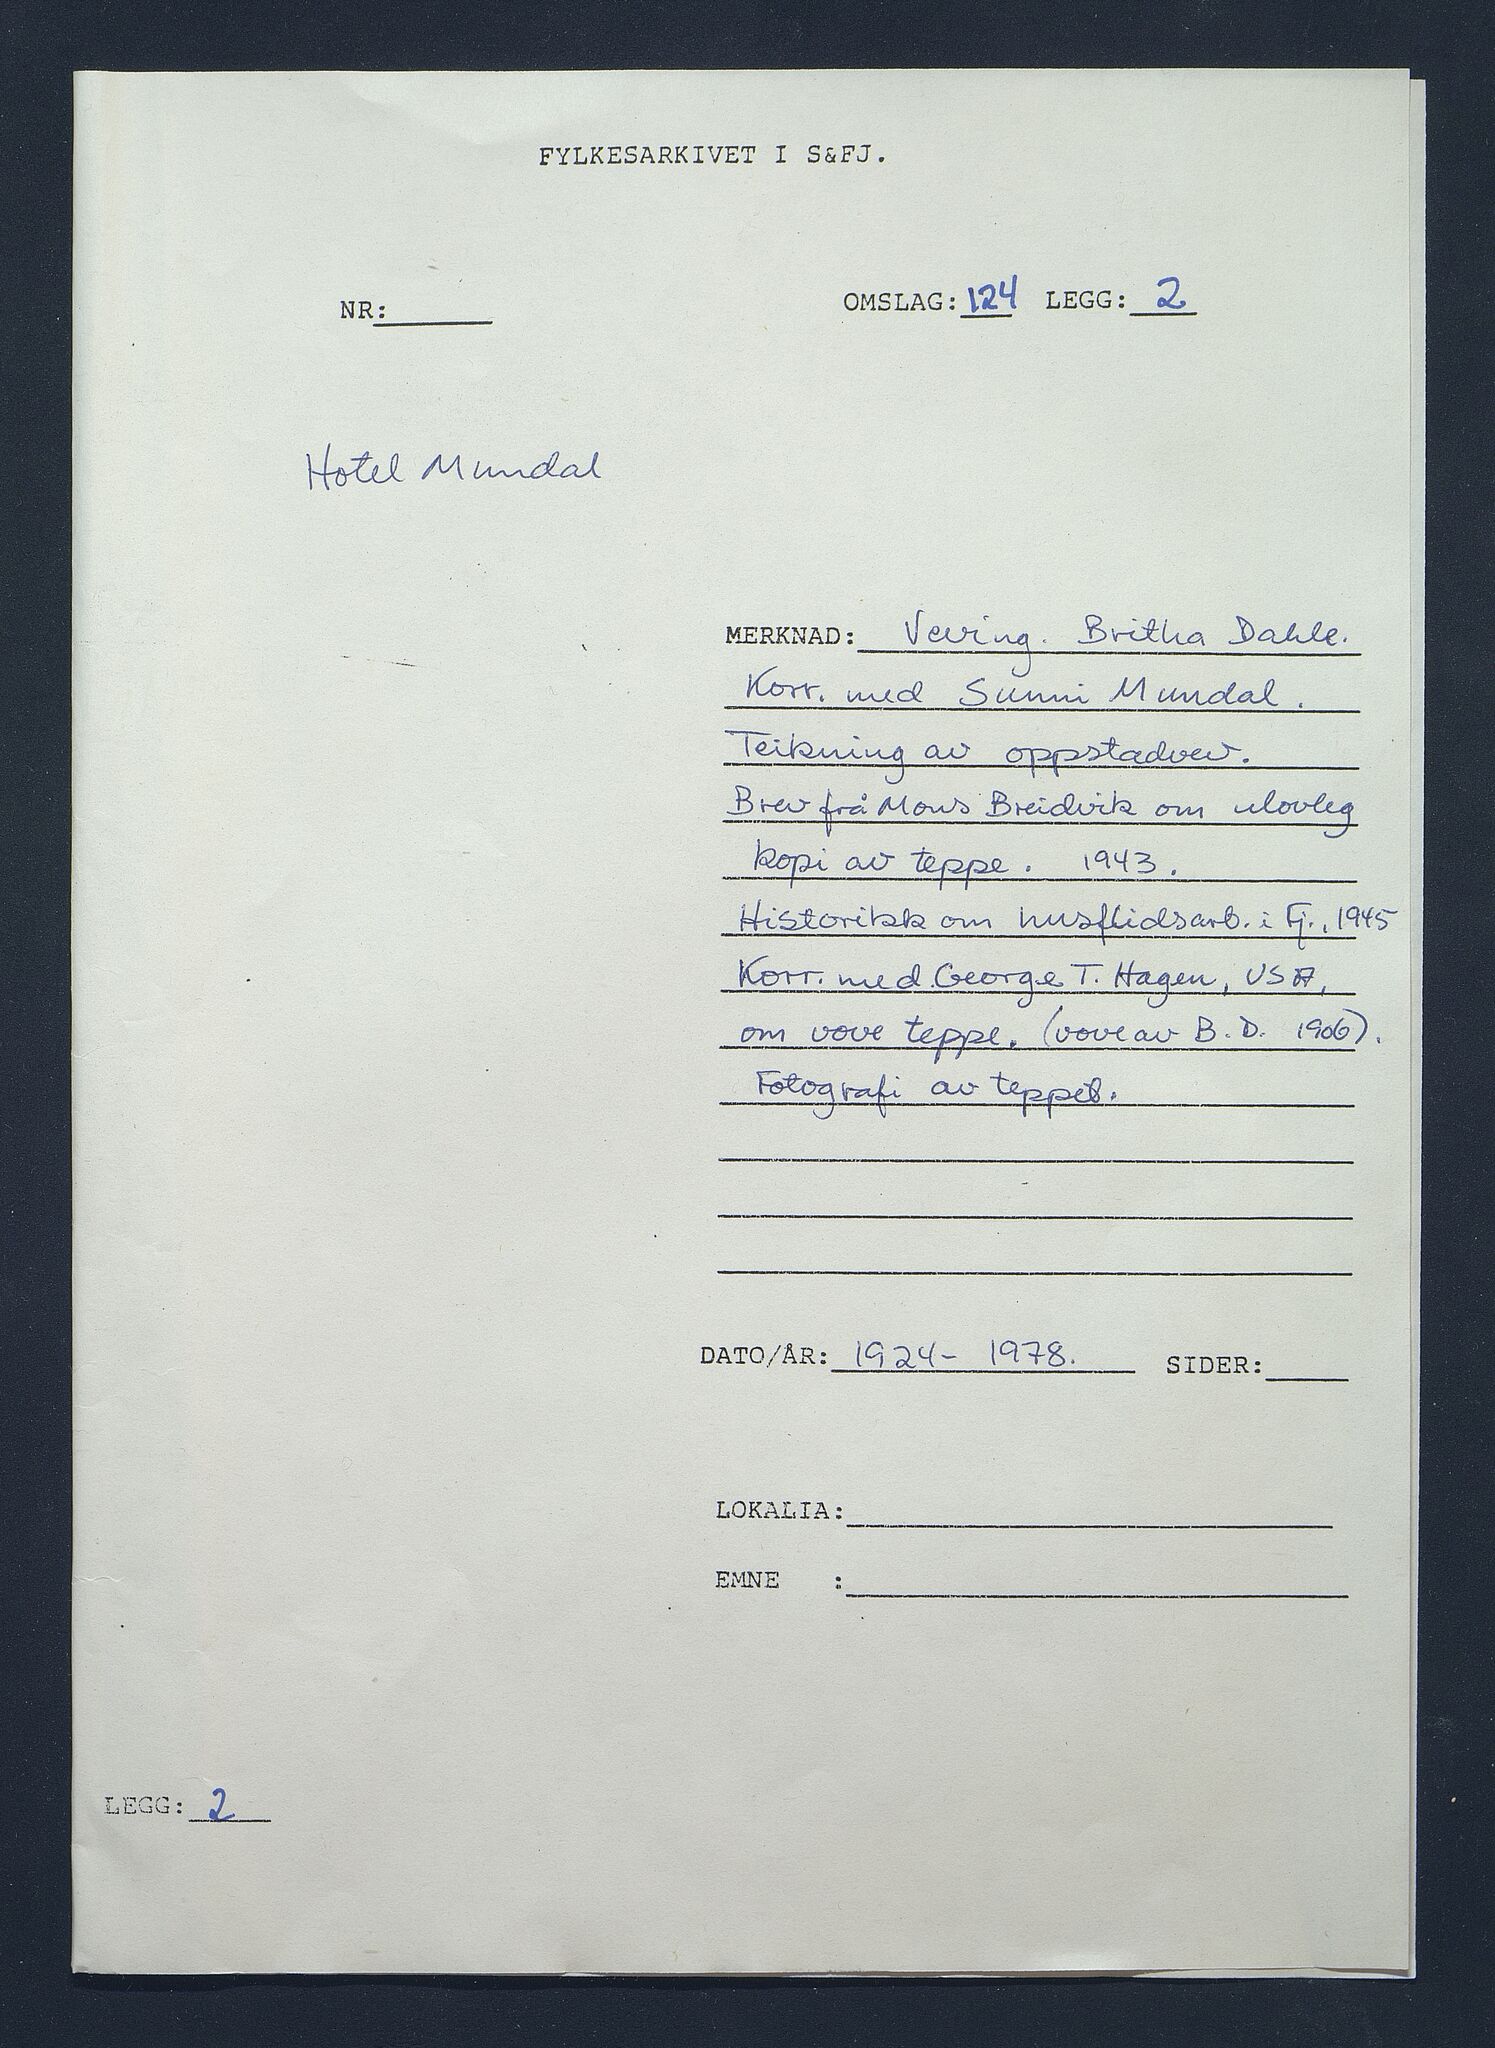 FYLKESARKIVET I S&FJ.
NR:
OMSLAG: 124 LEGG: 2
Hotel Mundal
MERKNAD: Veving. Britha Dahle.
Korr. med Sunni Mundal.
Teikning av oppstadvev.
Brev frå Mons Breidvik om ulovleg
kopi av teppe. 1943.
Historikk om husflidsarb. i Fj., 1945
Korr. med George T. Hagen, USA,
om vove teppe. (vove av B. D. 1906).
Fotografi av teppet.
DATO/ÅR: 1924- 1978. SIDER:
LOKALIA:
EMNE :
LEGG: 2